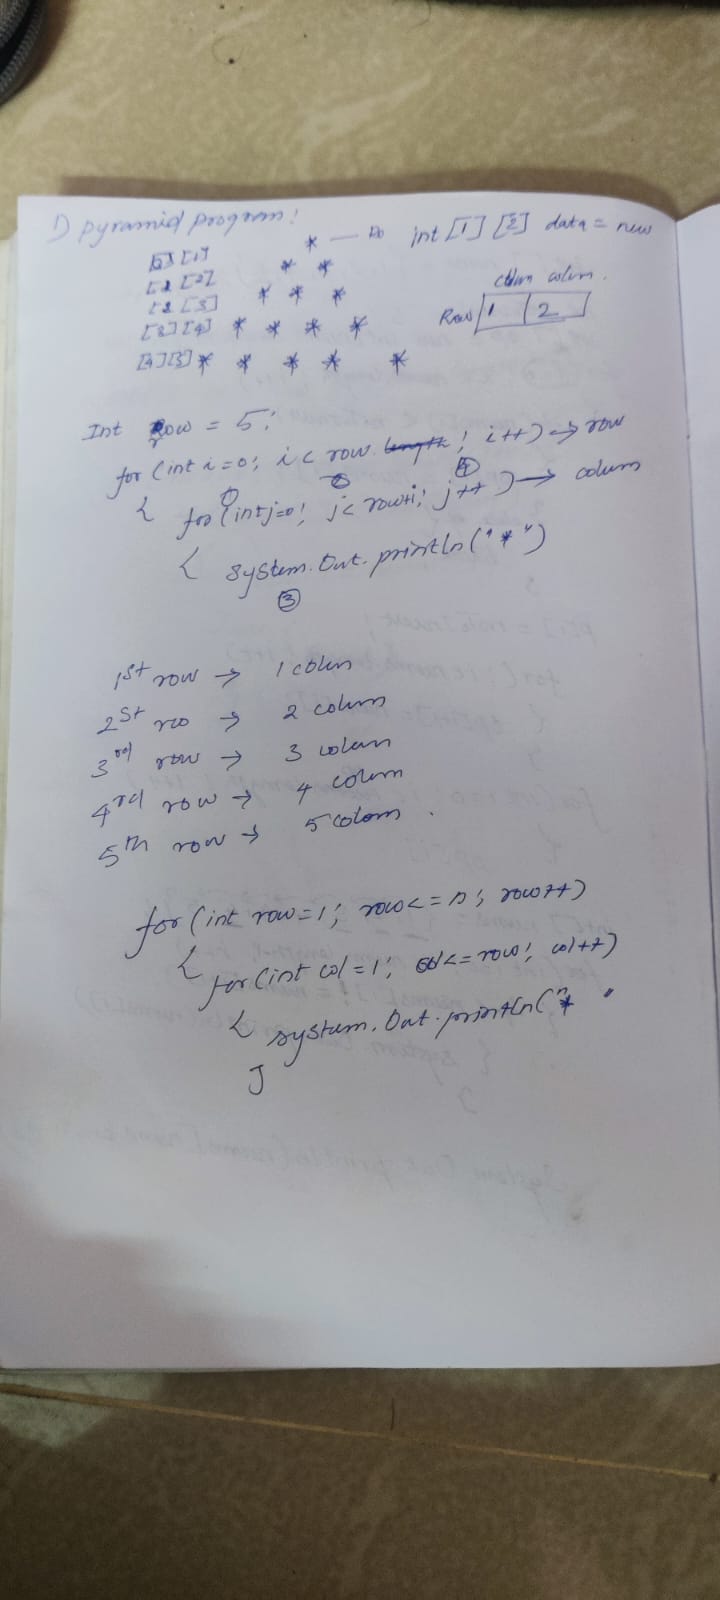 1) pyramid program:
* — Ro int [1] [2] data = new
[0] [1]
[1] [2] * *
[2] [3] * * *
colum colum.
Row 1 2
[3] [4] * * * *
[4] [5] * * * * *
Int row = 5;
for (int i=0; i< row. length; i++) → row
① ② ④
{ for (int j=0; j< row+i; j++) → colum
{ system. Out. println("*")
③
1st row → 1 colum
2st row → 2 colum
3rd row → 3 colum
4rd row → 4 colum
5th row → 5 colom.
for (int row=1; row<=n; row++)
{ for (int col=1; col<=row; col++)
{ system. Out. println("* "
}